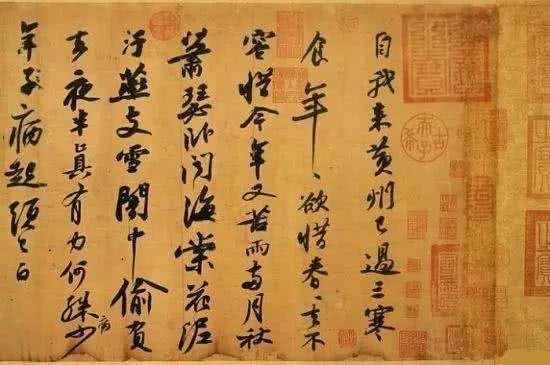 自我來黃州已過三寒
食年〻欲惜春〻去不
容惜今年又苦雨兩月秋
蕭瑟卧聞海棠花泥
汙燕支雪闇中偷負
去夜半真有力何殊少
病
年子病起須已白
古希天子